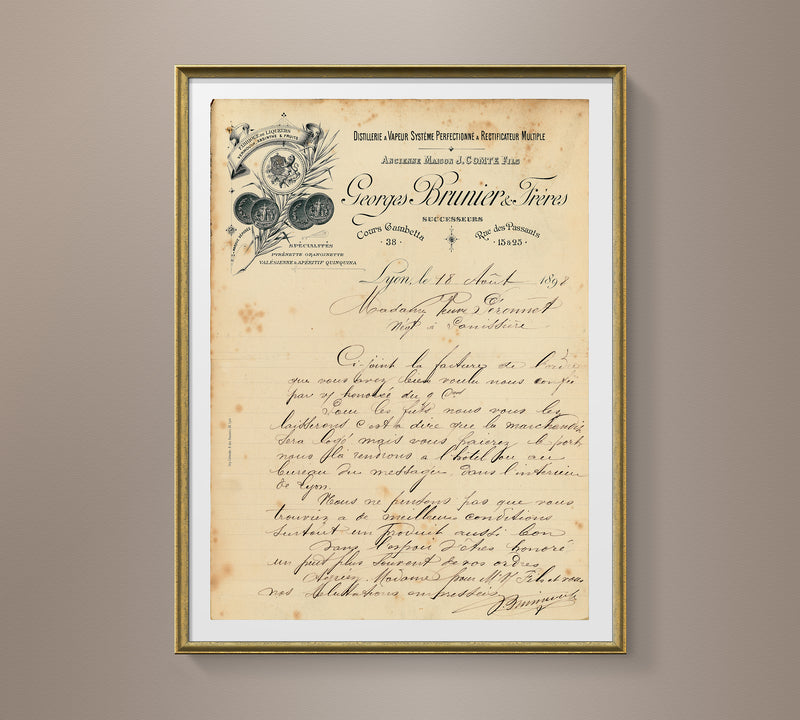 FABRIQUE DE LIQUEURS
ABSINTHE & FRUITS
DISTILLERIE A VAPEUR SYSTÈME PERFECTIONNÉ & RECTIFICATEUR MULTIPLE
ANCIENNE MAISON J. COMTE FILS
Georges Brunier & Frères
SUCCESSEURS
Cours Gambetta
· 38 ·
Rue des Passants
· 15 & 25 ·
SPÉCIALITÉS
PYRÉNETTE ORANGINETTE
VALÉSIENNE & APÉRITIF QUINQUINA
Lyon, le 18 Août 1898
Madame Veuve Péronnet
Négt à
Ci-joint la facture de
que vous avez bien voulu nous
par v/ honorée du 9 Ct
Pour les fûts nous vous les
laisserons c'est à dire que la marchandise
sera logé mais vous paierez le port
nous la rendrons a l'hôtel ou au
bureau du messager, dans l'intérieur
de Lyon.
Nous ne pensons pas que vous
trouviez a de meilleurs conditions
surtout un produit aussi bon
Dans l'espoir d'être honoré
un peut plus souvent de vos ordres
Agréez Madame pour Mr V Fils et vous
nos salutations empressées